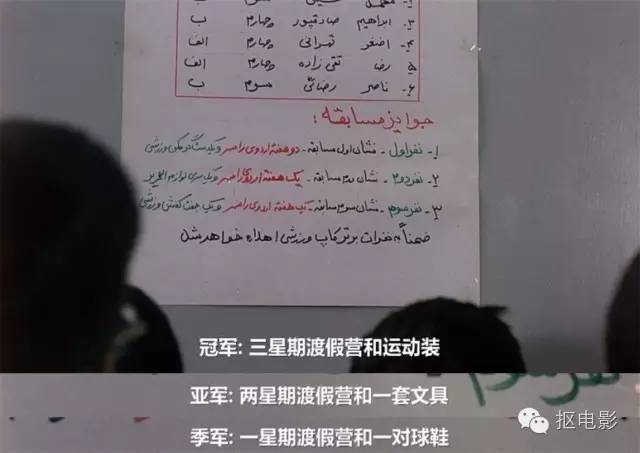 ۳- ابراهیم صادقپور چهارم ب
۴- اصغر تهرانی چهارم الف
۵- رضا تقی زاده چهارم الف
۶- ناصر رضائی سوم ب
جوایز مسابقه:
۱- نفر اول - نشان اول مسابقه - دو هفته اردوی رامسر و یکدست گرمکن ورزشی
۲- نفر دوم - نشان دوم مسابقه - یک هفته اردوی رامسر و یک سری لوازم التحریر
۳- نفر سوم - نشان سوم مسابقه - یک هفته اردوی رامسر و یک جفت کفش ورزشی
ضمناً به نفرات برتر کاپ ورزشی اهداء خواهد شد
冠军: 三星期渡假营和运动装
亚军: 两星期渡假营和一套文具
季军: 一星期渡假营和一对球鞋
抠电影